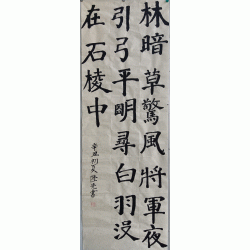 林暗草驚風將軍夜
引弓平明尋白羽没
在石棱中
辛丑
書